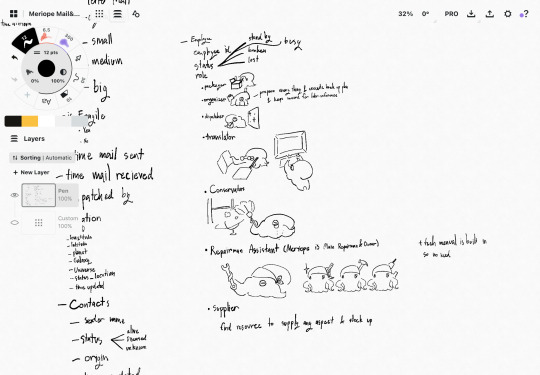 Meriope Mail&...
32%
0°
PRO
12
6.5
250
12 pts
0%
100%
Layers
Sorting | Automatic
+ New Layer
Pen
100%
Custom
100%
– small
medium
– big
fragile
time mail sent
– time mail recieved
patched by
– planet
– Galaxy
– Universe
– status_location
– time updated
– Contacts
– sender name
– status
alive
deceased
unknown
– origin
– Employee
employee id
status
stand by
busy
broken
lost
role
• packager
• organizer
prepare every thing & records back up plan
& keep record for later reference
• dispatcher
• translator
• Conservator
• Repairman Assistant (Meriope is Main Repairman & Owner)
+ tech manual is built in
so no need
• supplier
find resource to supply any aspect & stock up